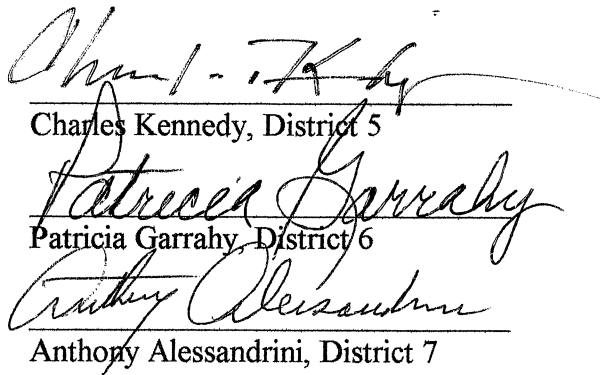 Charles Kennedy, District 5
Patricia Garrahy
Patricia Garrahy, District 6
Anthony Alessandrini
Anthony Alessandrini, District 7